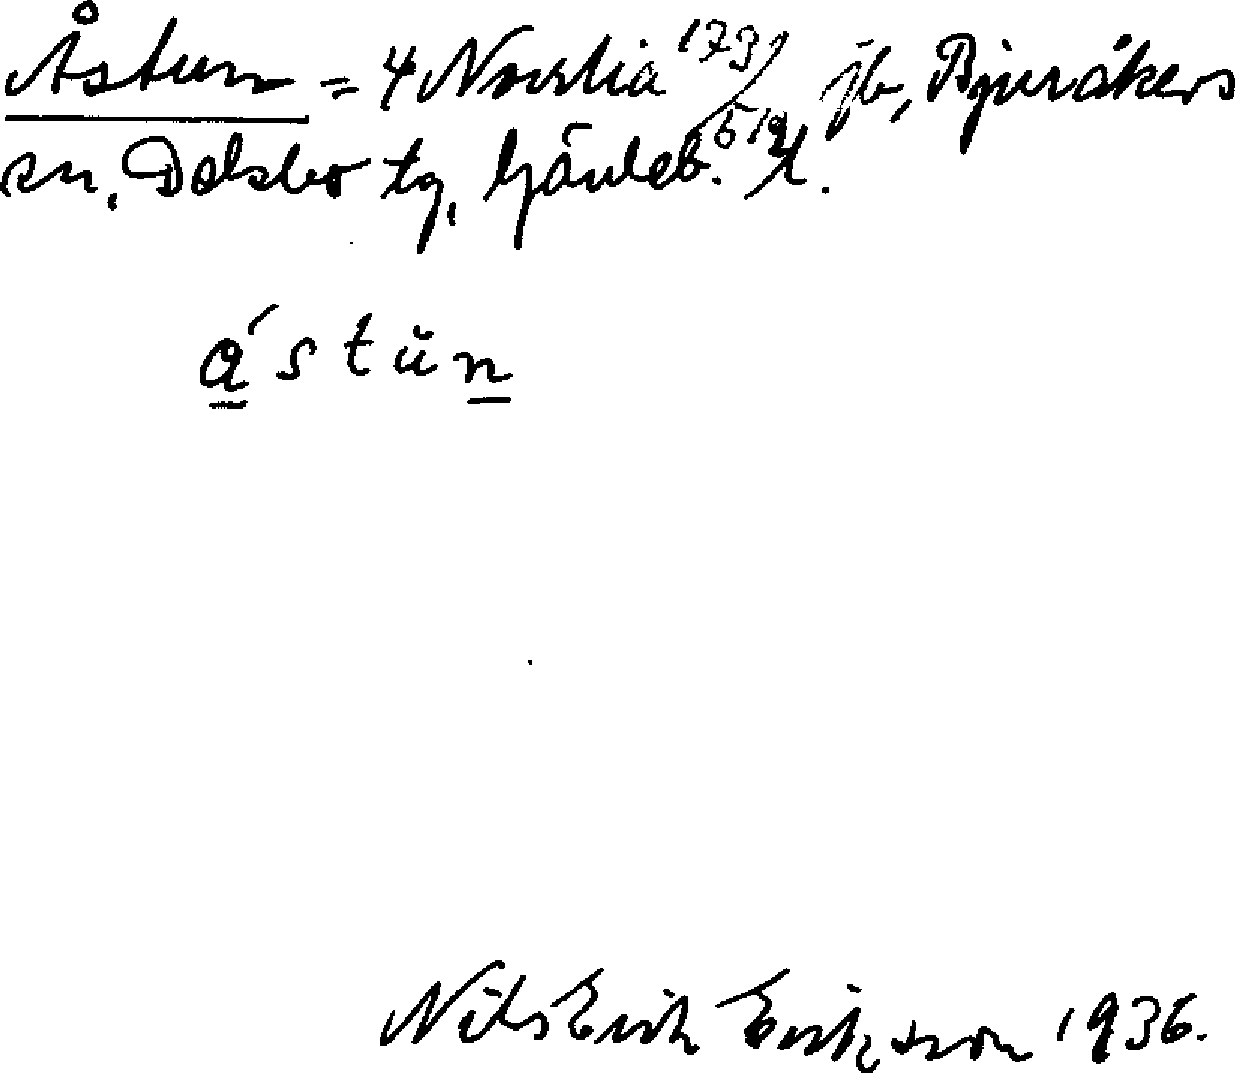 Åstun = 4 Norrlia 173/512 jb, Bjuråkers
sn, Delsbo tg, Gävleb. l.
a´ s t ŭ n
Nils Erik Eriksson 1936.